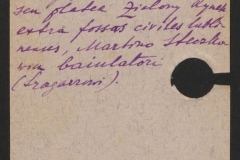 seu platea Zielony Rynek
extra fossas civiles Lubli
nenses, Martino
won baiulatori
(Tragarzowi).